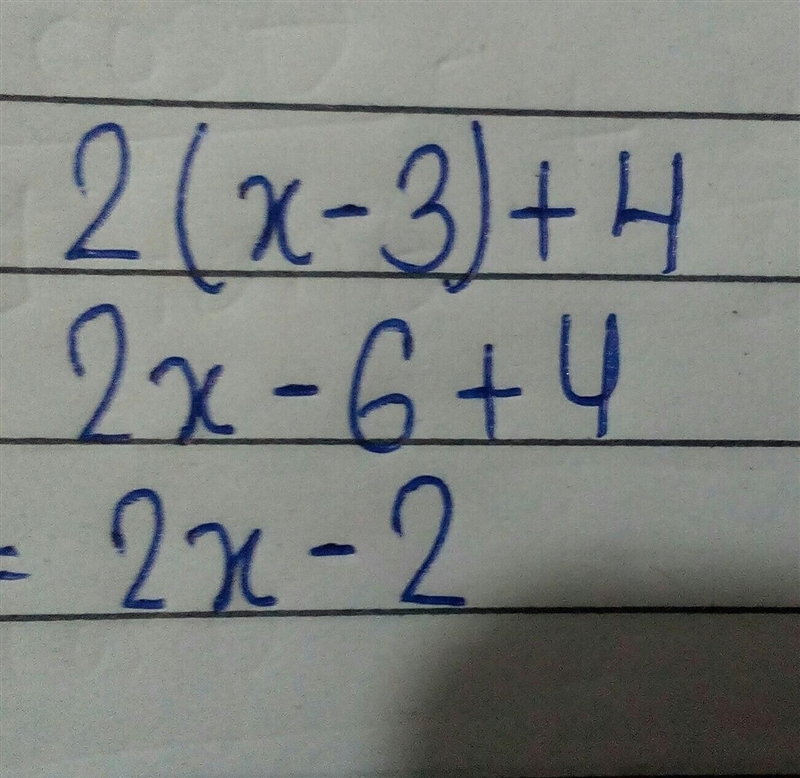 2(x-3)+4
2x-6+4
= 2x-2